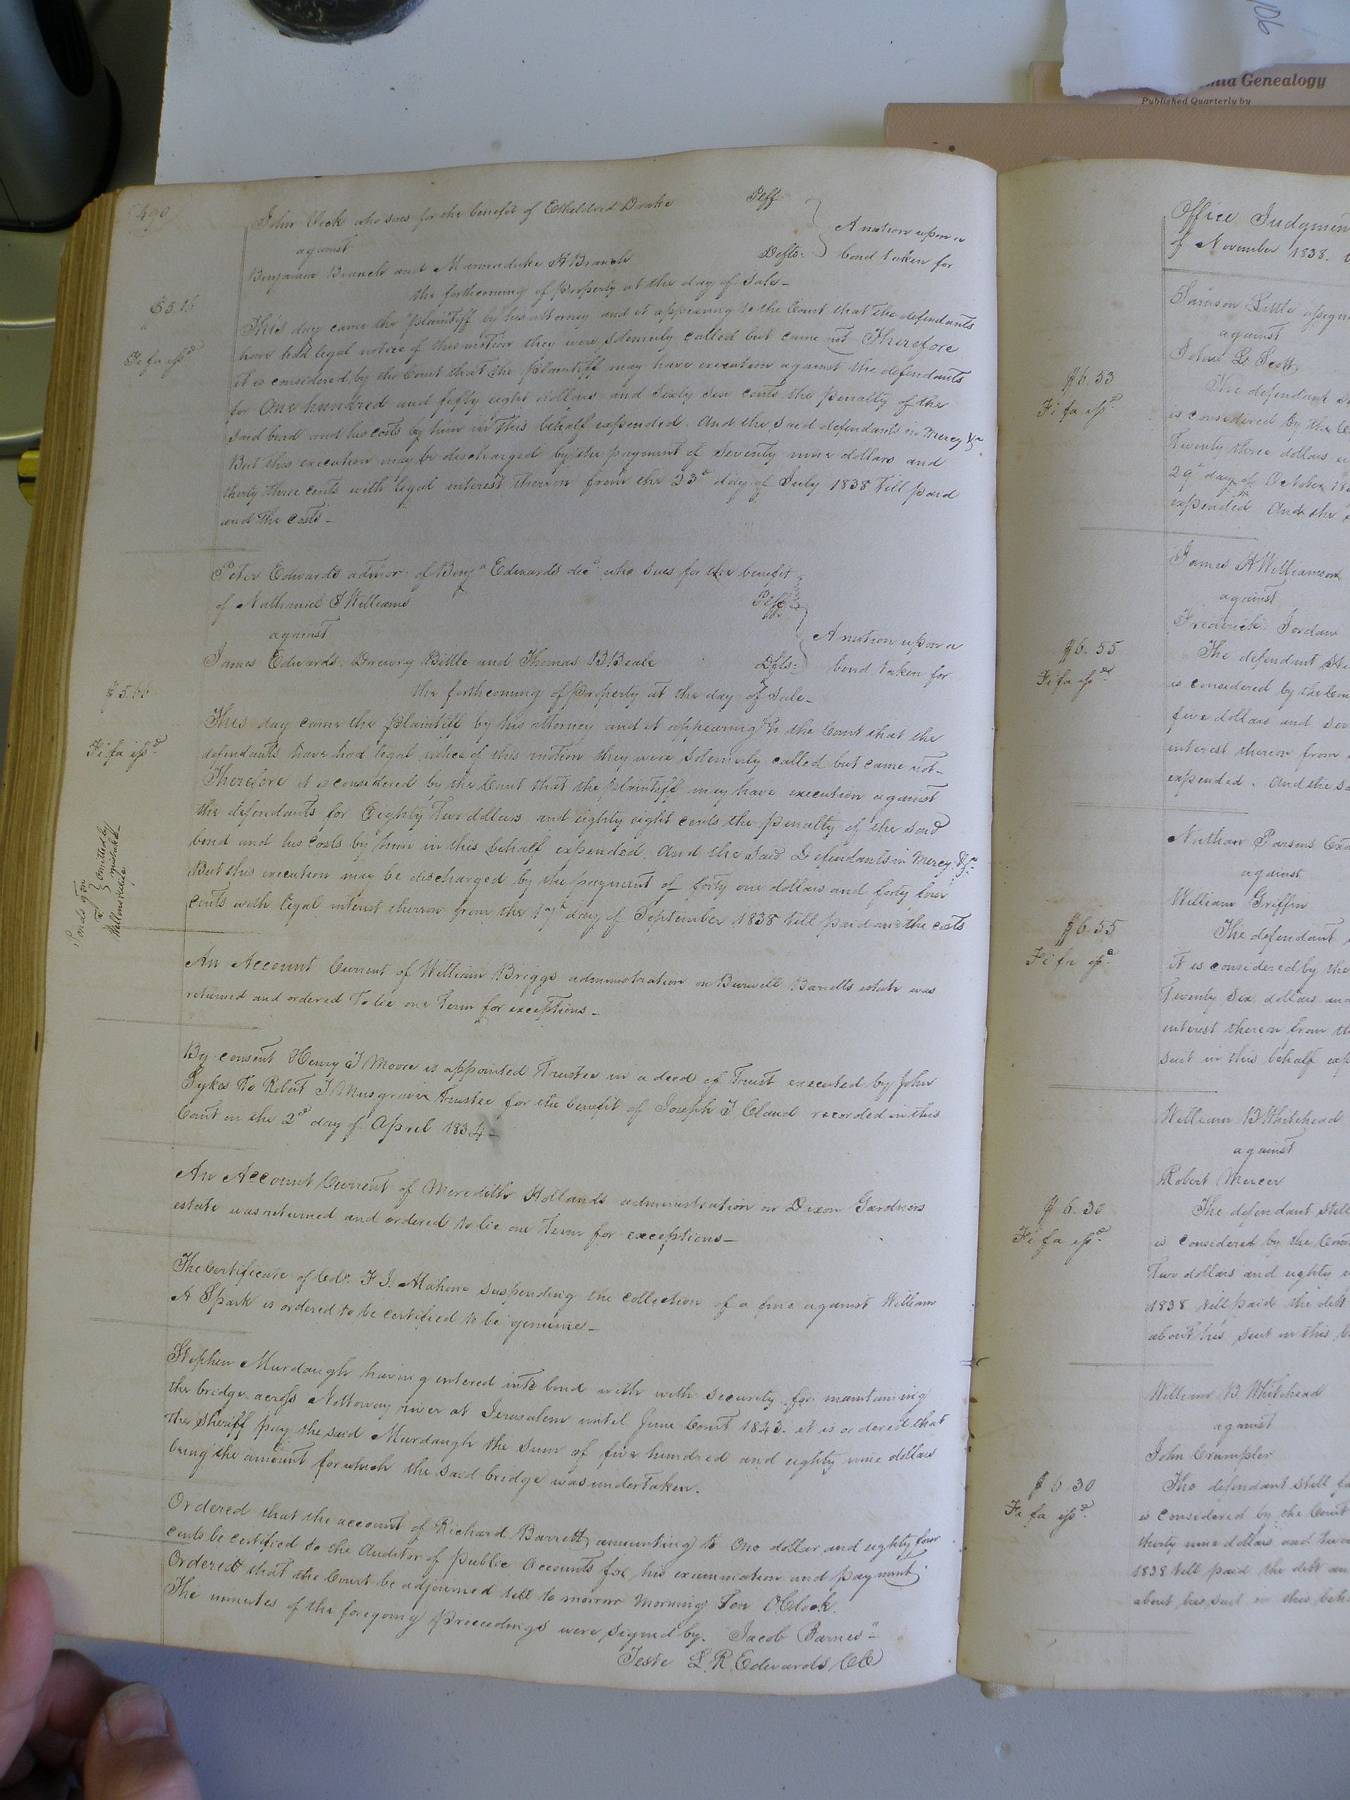 490
John Vick who sues for the benefit of Etheldred Drake Plff
against
Benjamin Branch and Marmaduke A Branch Defts:
A motion upon a
bond taken for
the forthcoming of property at the day of sale-
Fi fa issd
This day came the plaintiff by his attorney and it appearing to the Court that the defendants
have had legal notice of this motion they were solemnly called but came not Therefore
it is considered by the Court that the plaintiff may have execution against the defendants
for One hundred and fifty eight dollars and sixty six cents the penalty of the
said bond and his costs by him in this behalf expended. And the said defendants in Mercy &c.
But this execution may be discharged by the payment of Seventy nine dollars and
thirty three cents with legal interest thereon from the 23d day of July 1838 till paid
and the costs-
Peter Edwards admor of Benja Edwards decd who sues for the benefit
of Nathaniel Williams Plff
against
James Edwards, Drewry Bittle and Thomas B Beale Dfts:
A motion upon a
bond taken for
the forthcoming of property at the day of sale-
$5.66
Fi fa issd
This day came the plaintiff by his attorney and it appearing to the Court that the
defendants have had legal notice of this motion they were solemnly called but came not-
Therefore it is considered by the Court that the plaintiff may have execution against
the defendants for Eighty two dollars and eighty eight cents the penalty of the said
bond and his costs by him in this behalf expended. And the said Defendants in Mercy &c.
But this execution may be discharged by the payment of forty one dollars and forty four
cents with legal interest thereon from the 17th day of September 1838 till paid and the costs
omitted by
mistake
An Account Current of William Briggs administration on Burwell Barretts estate was
returned and ordered to lie one term for exceptions-
By consent Henry J Moore is appointed Trustee in a deed of Trust executed by John
Sykes to Robert J Musgrave Trustee for the benefit of Joseph T Claud recorded in this
Court on the 2d day of April 1834-
An Account Current of Meredith Hollands administration on Dixon Gardners
estate was returned and ordered to lie one term for exceptions-
The Certificate of Col. F J. Mahone suspending the collection of a fine against William
A Spark is ordered to be certified to be genuine-
Stephen Murdaugh having entered into bond with with security for maintaining
the bridge across Nottoway river at Jerusalem until June Court 1843. it is ordered that
the sheriff pay the said Murdaugh the sum of five hundred and eighty nine dollars
being the amount for which the said bridge was undertaken.
Ordered that the account of Richard Barrett, amounting to One dollar and eighty four
cents be certified to the Auditor of public Accounts for his examination and payment.
Ordered that the Court be adjourned till to morrow morning Ten OClock.
The minutes of the foregoing proceedings were signed by. Jacob Barnes"-
Teste L R Edwards CC
Office Judgmen
of November 1838.
Samson Little assign
against
John L Scott
$6.53
Fi fa issd
The defendant
is considered by the
Twenty three dollars
29th day of October
expended And the
James A Williamson
against
Frederick Jordan
$6.55
Fi fa issd
The defendant
is considered by the Cou
five dollars and
interest thereon from
expended. And the
Nathan Parsons
against
William Griffin
$6.55
Fi fa issd
The defendant
it is considered by the
Twenty six dollars
interest thereon from
suit in this behalf exp
William B Whitehead
against
Robert Mercer
$6.30
Fi fa issd
The defendant still
is considered by the Cou
Two dollars and eighty
1838 till paid the debt
about his suit in this
William B Whitehead
against
John Crumpler
$6.30
Fi fa issd
The defendant still fa
is considered by the Court
thirty nine dollars and
1838 till paid the debt an
about his suit in this beh
Genealogy
Published Quarterly by